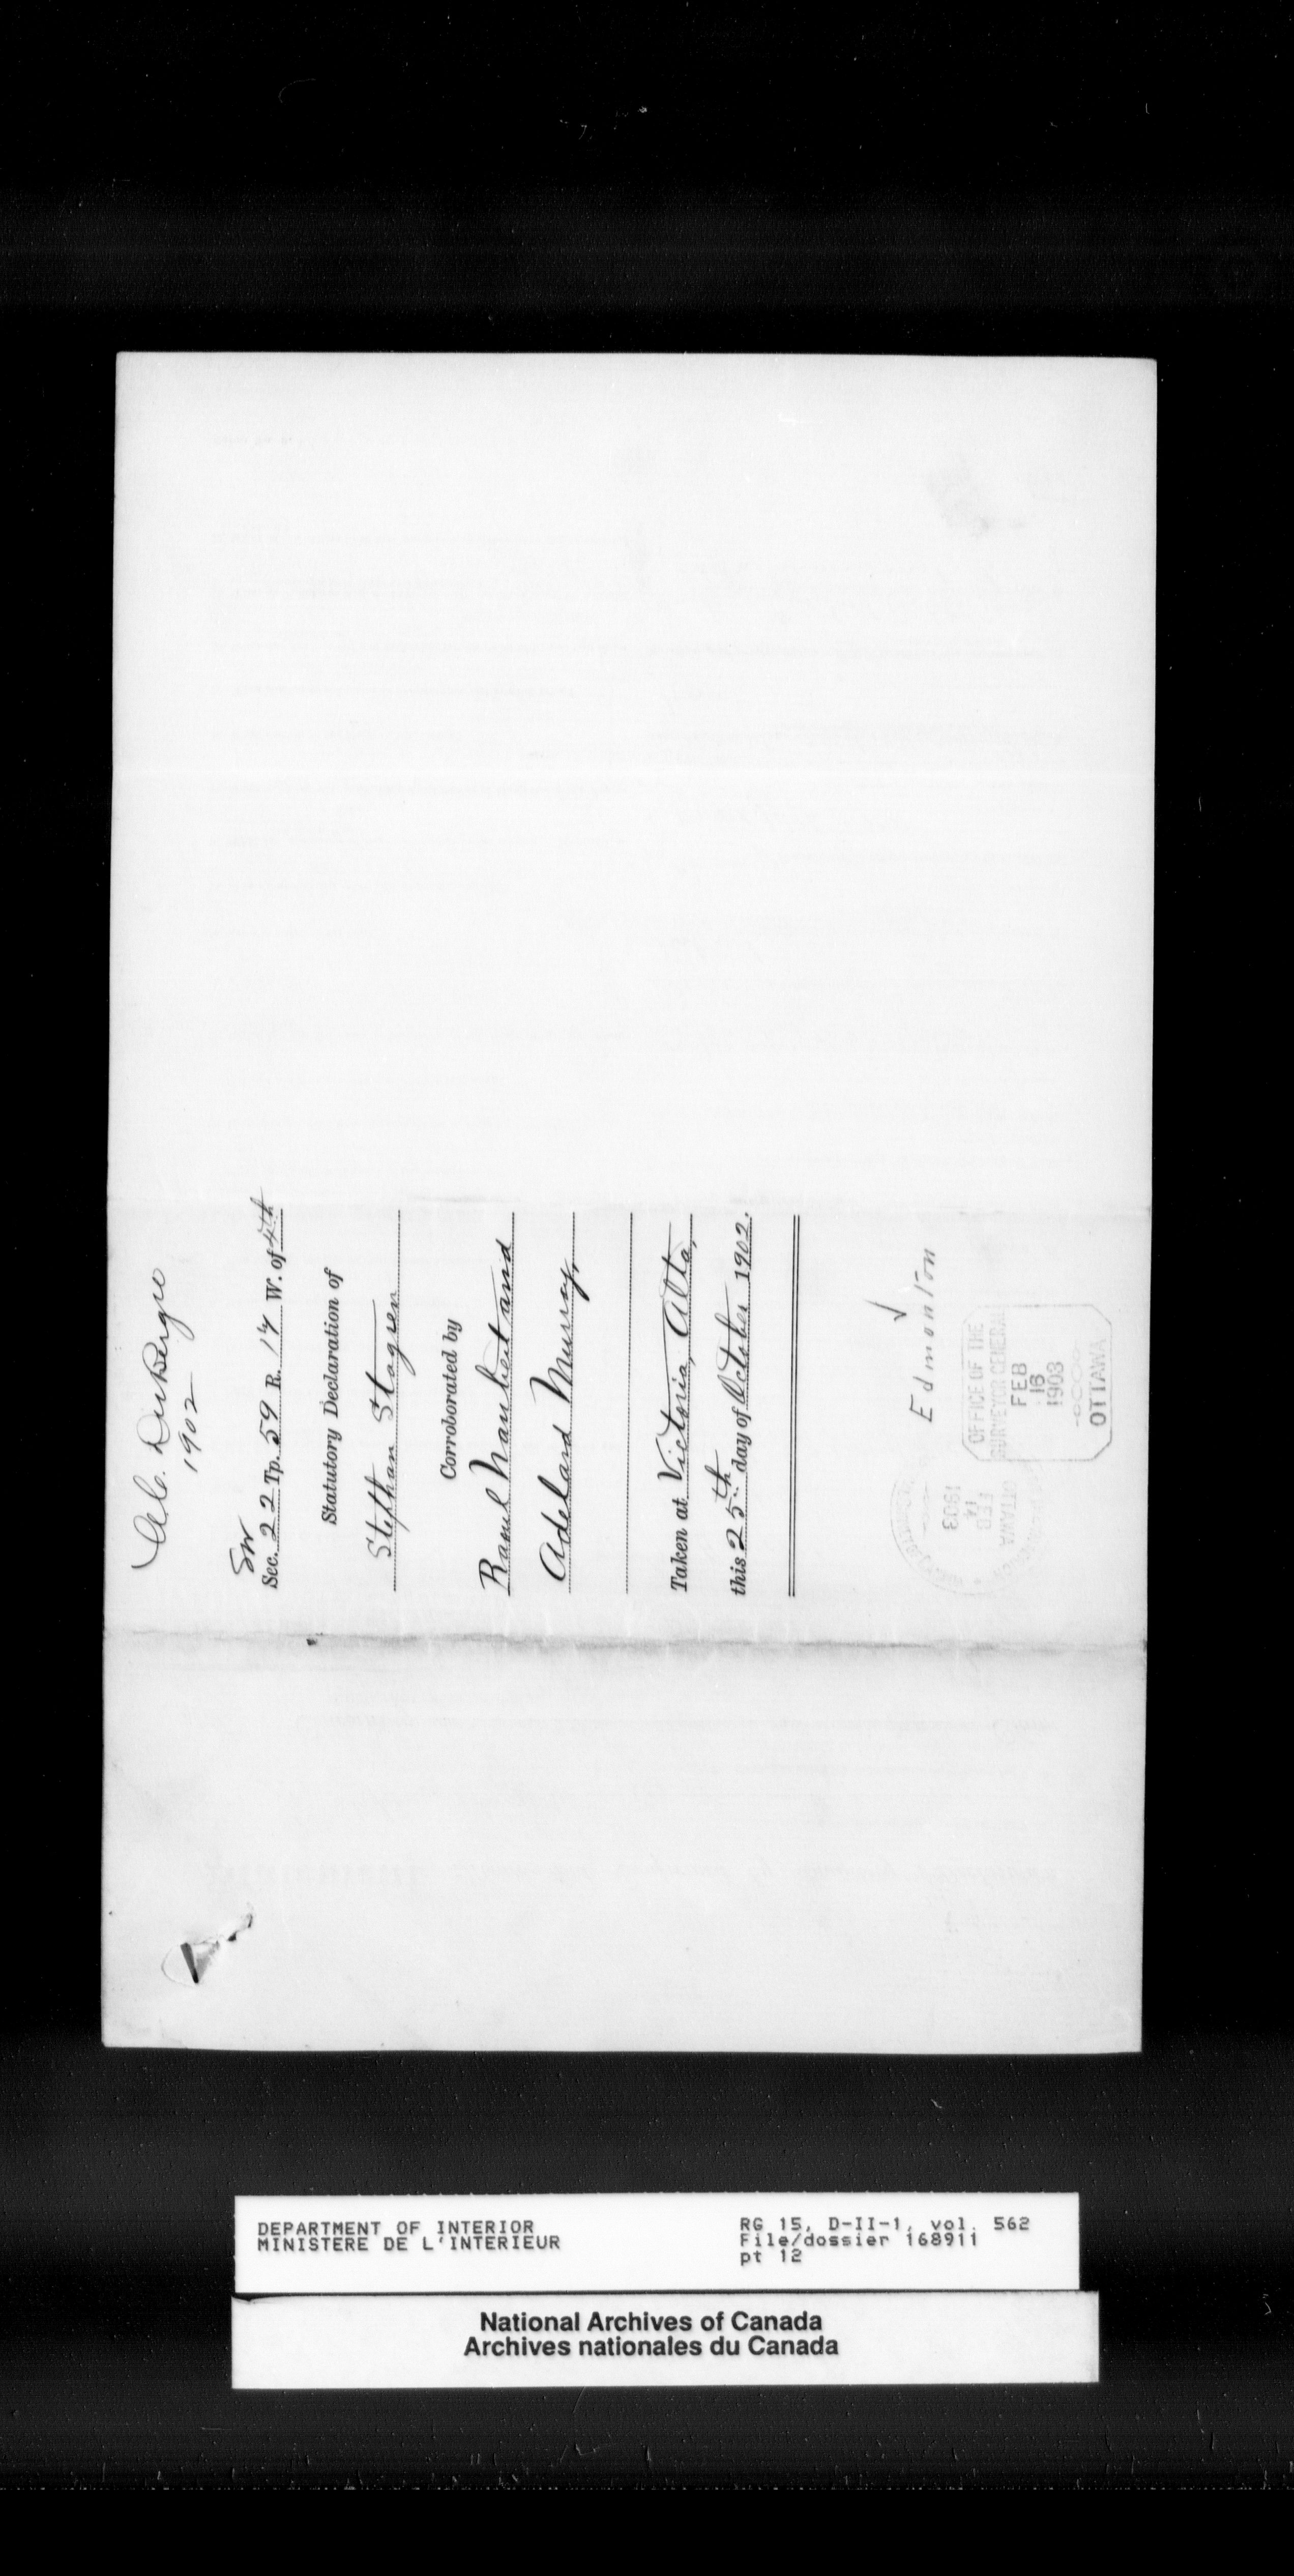 1902
SW
Sec. 22 Tp. 59 R. 17 W. of 4th
Statutory Declaration of
Stephan Stogren
Corroborated by
Raoul and
Adelard Murray
Taken at Victoria, Alta,
this 25th day of October 1902.
Edmonton
OFFICE OF THE
SURVEYOR GENERAL
FEB
16
1903
OTTAWA
FEB
14
1903
OTTAWA
DEPARTMENT OF INTERIOR
MINISTERE DE L'INTERIEUR
RG 15, D-II-1, vol. 562
File/dossier 168911
pt 12
National Archives of Canada
Archives nationales du Canada